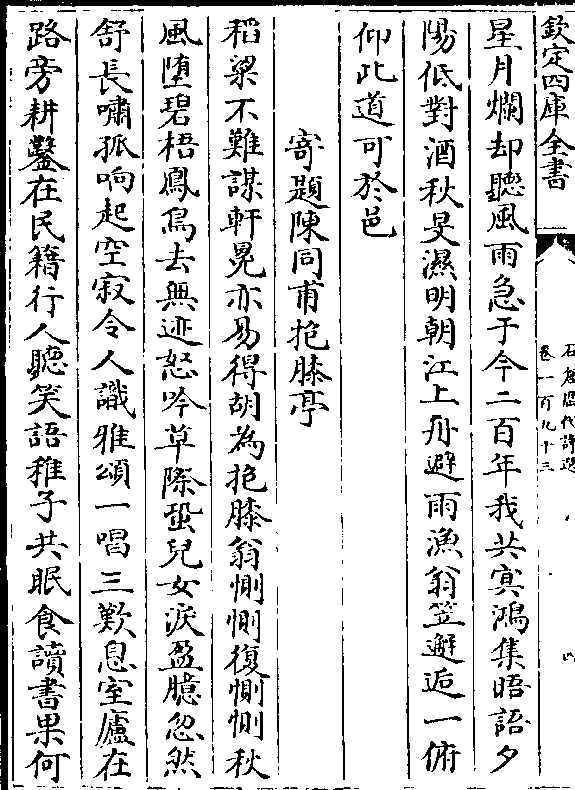 欽定四庫全書
石倉歷代詩選
卷一百九十三
星月爛却聽風雨急于今二百年我共㝠鴻集晤語夕
陽低對酒秋旻濕明朝江上舟避雨漁翁笠邂逅一俯
仰此道可於邑
寄題陳同甫抱膝亭
稻粱不難謀軒冕亦易得胡為抱膝翁惻惻復惻惻秋
風墮碧梧鳳鳥去無迹怒吟草際蛩兒女淚盈臆忽然
舒長嘯孤响起空寂令人識雅頌一唱三歎息室廬在
路旁耕鑿在民籍行人聽笑語稚子共眠食讀書果何